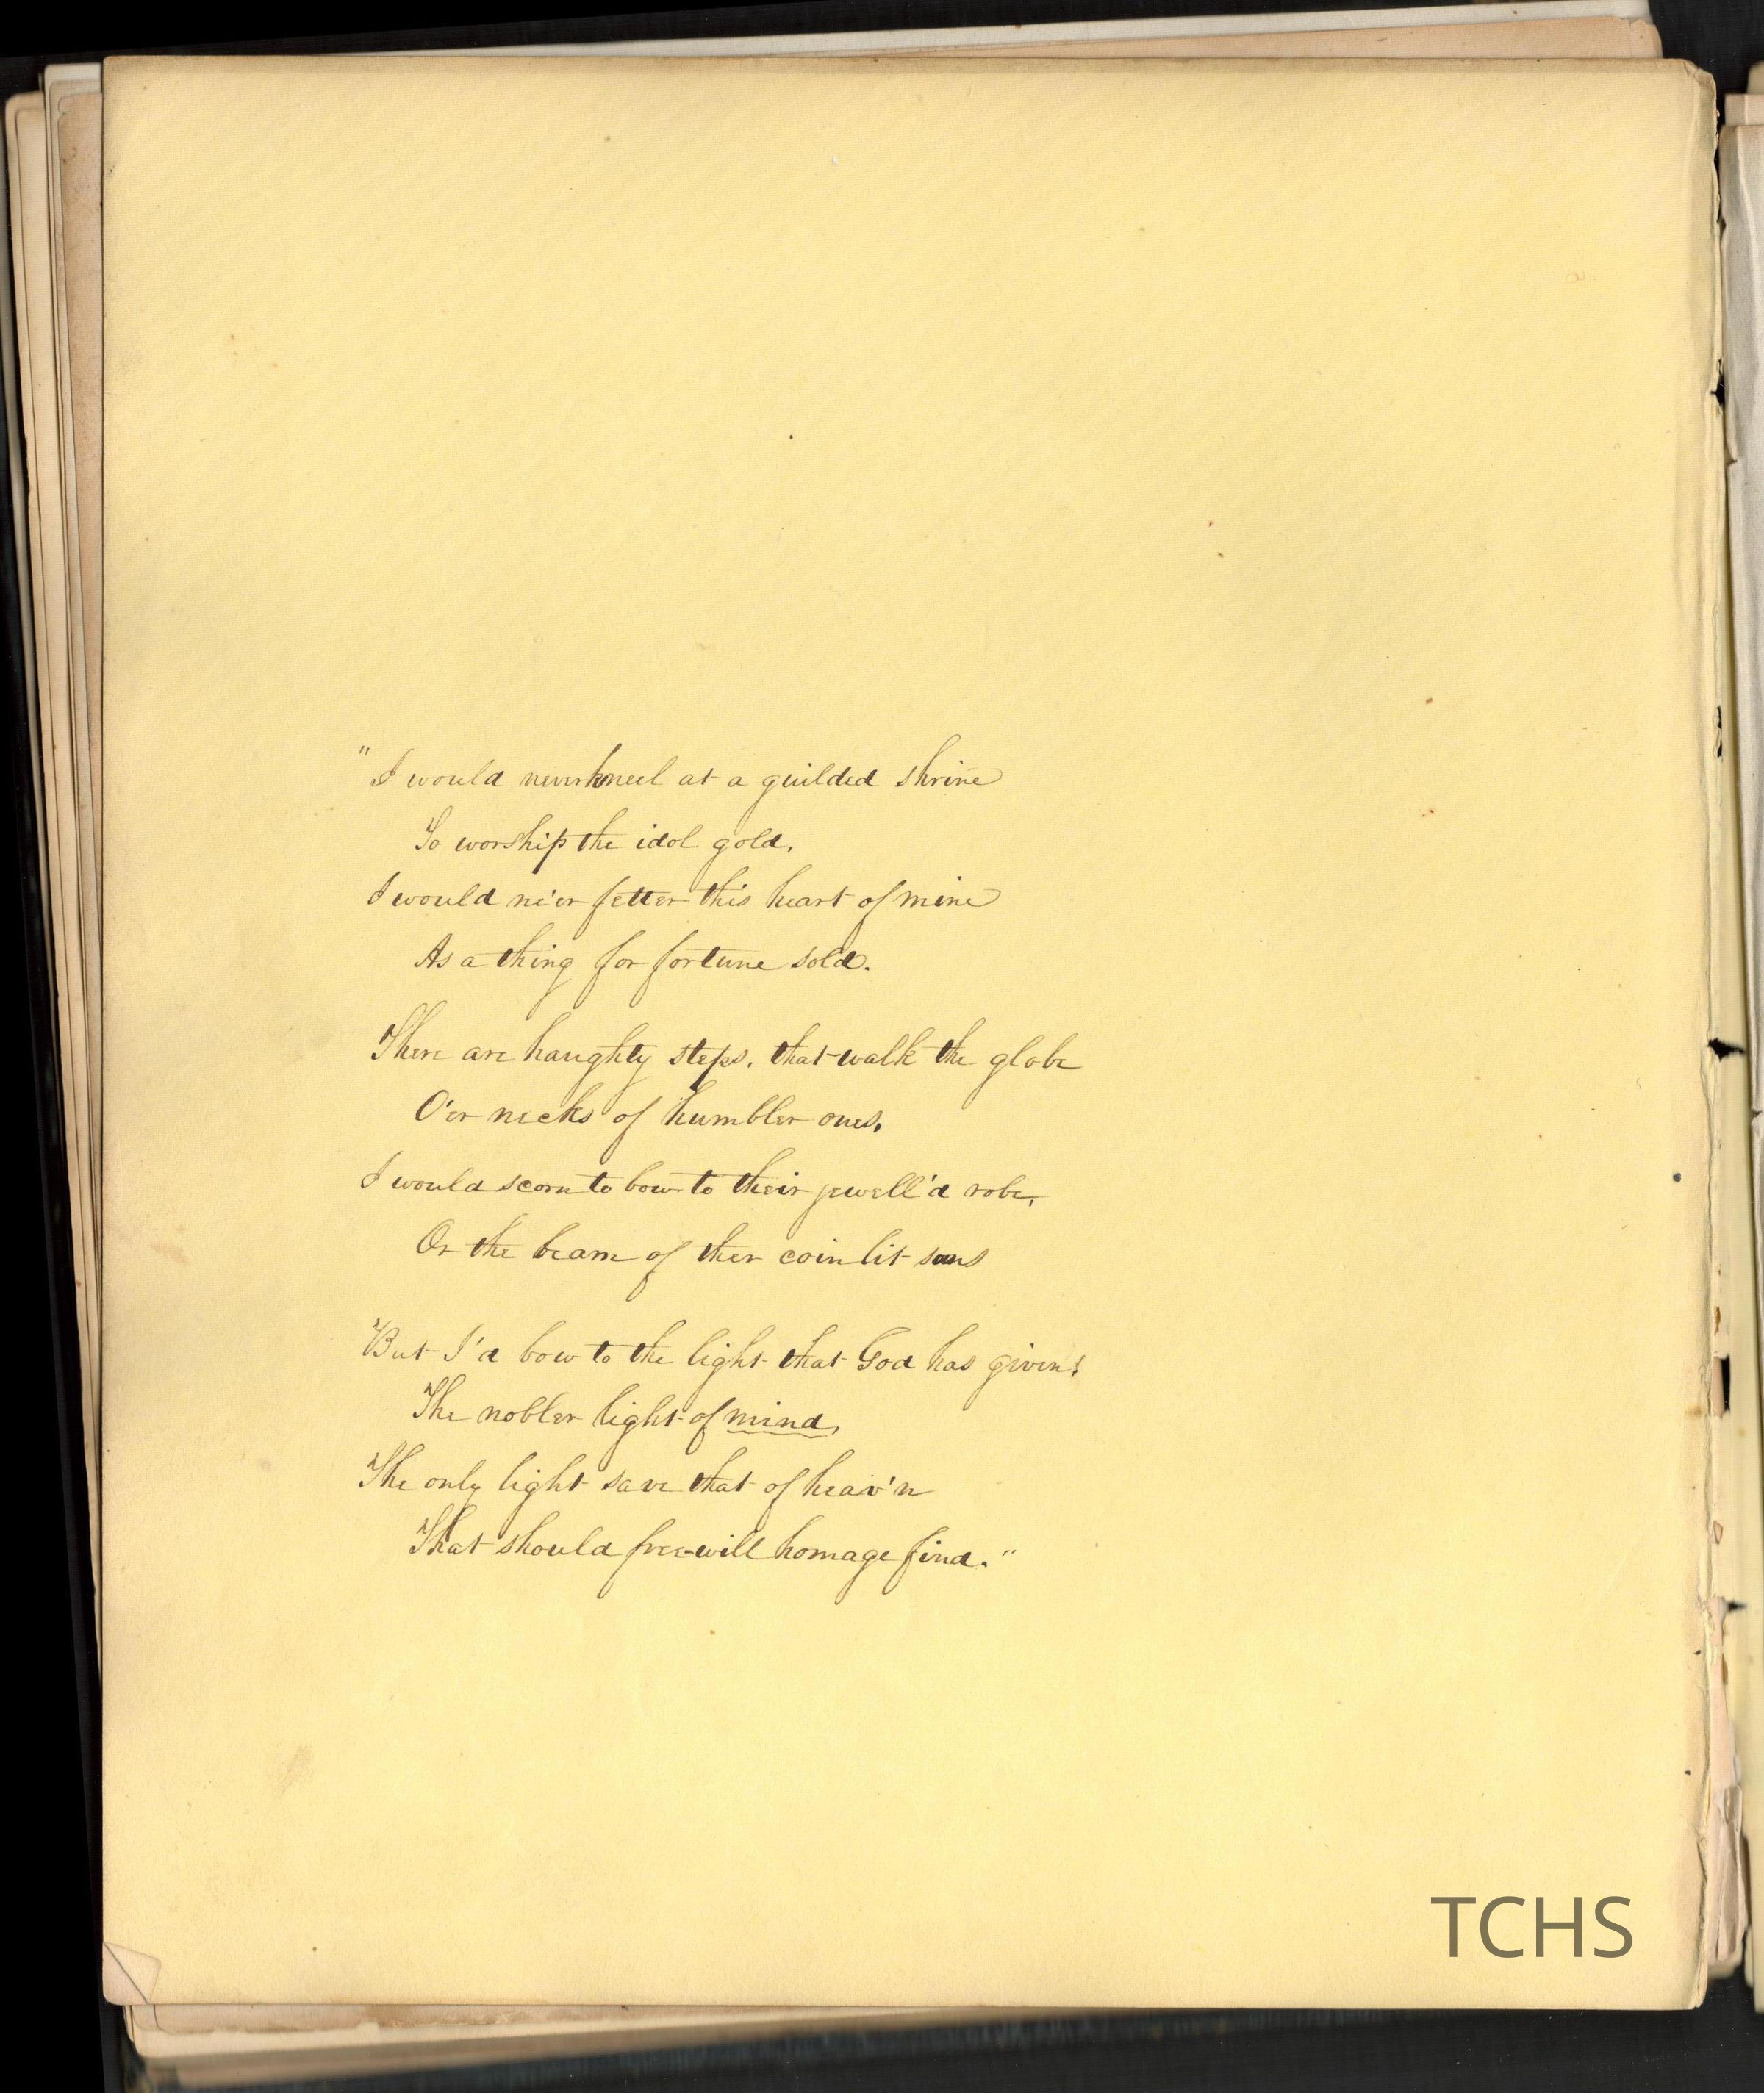 "I would never kneel at a guilded shrine
To worship the idol gold,
I would ne'er fetter this heart of mine
As a thing for fortune sold.
There are haughty steps, that walk the globe
O'er necks of humbler ones,
I would scorn to bow to their jewell'd robe,
Or the beam of ther coin lit suns
"But I'd bow to the light that God has given!
The nobler light of mind,
The only light save that of heav'n
That should free-will homage find."
TCHS